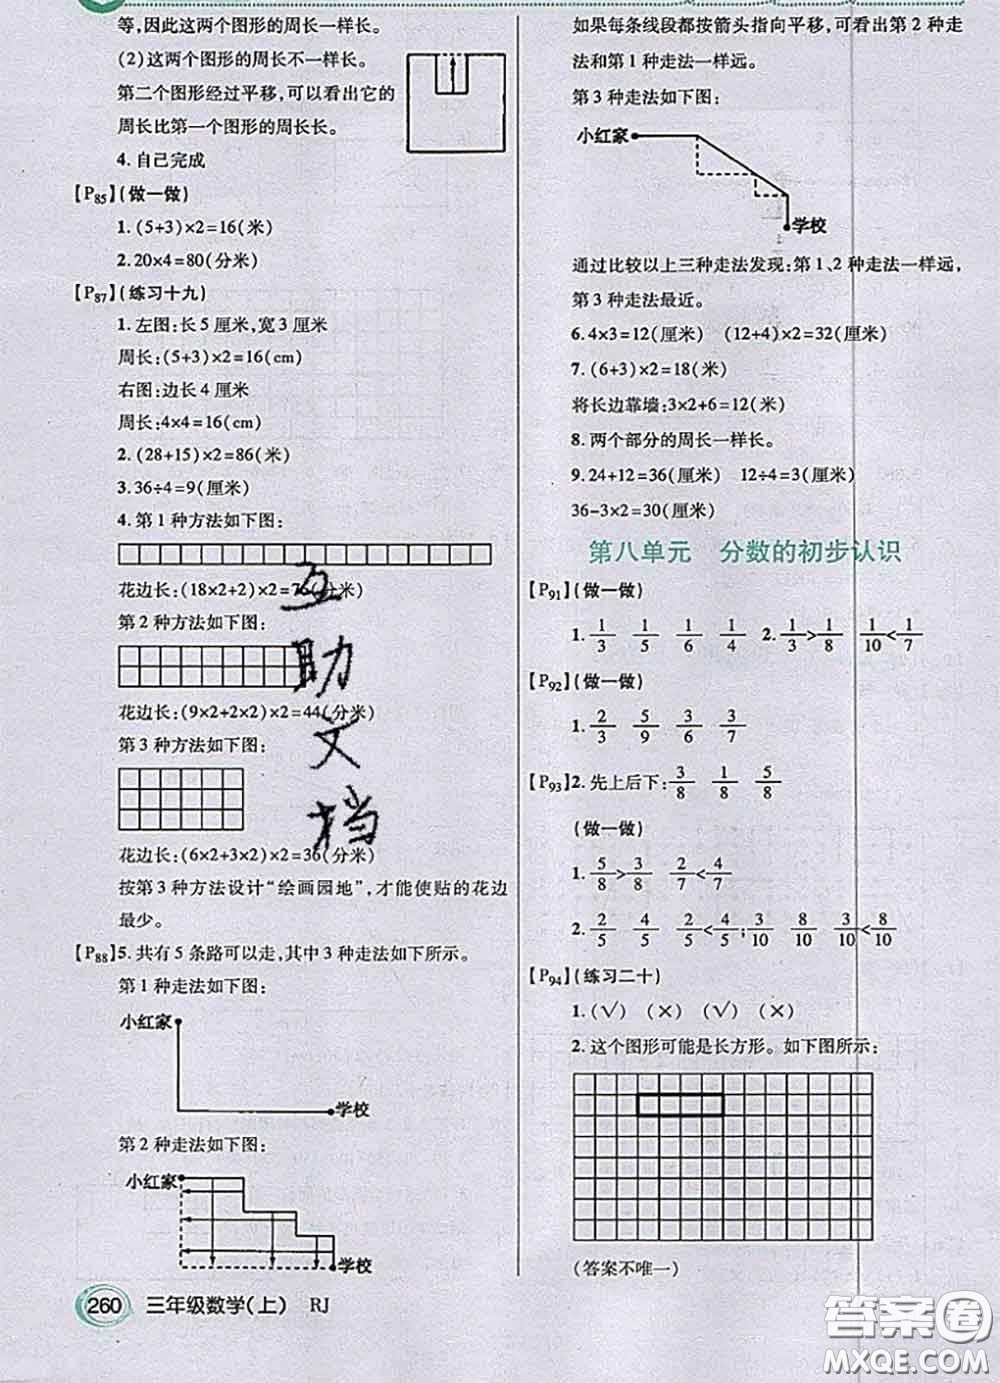 等,因此这两个图形的周长一样长。
(2)这两个图形的周长不一样长。
第二个图形经过平移,可以看出它的
周长比第一个图形的周长长。
4.自己完成
【P85】(做一做)
1.(5+3)×2=16(米)
2.20×4=80(分米)
【P87】(练习十九)
1.左图:长5厘米,宽3厘米
周长:(5+3)×2=16(cm)
右图:边长4厘米
周长:4×4=16(cm)
2.(28+15)×2=86(米)
3.36÷4=9(厘米)
4.第1种方法如下图:
花边长:(18×2+2)×2=76(分米)
第2种方法如下图:
花边长:(9×2+2×2)×2=44(分米)
第3种方法如下图:
花边长:(6×2+3×2)×2=36(分米)
按第3种方法设计“绘画园地”,才能使贴的花边
最少。
【P88】5.共有5条路可以走,其中3种走法如下所示。
第1种走法如下图:
小红家
学校
第2种走法如下图:
小红家
学校
260 三年级数学(上) RJ
如果每条线段都按箭头指向平移,可看出第2种走
法和第1种走法一样远。
第3种走法如下图:
小红家
学校
通过比较以上三种走法发现:第1、2种走法一样远,
第3种走法最近。
6.4×3=12(厘米) (12+4)×2=32(厘米)
7.(6+3)×2=18(米)
将长边靠墙:3×2+6=12(米)
8.两个部分的周长一样长。
9.24+12=36(厘米) 12÷4=3(厘米)
36-3×2=30(厘米)
第八单元 分数的初步认识
【P91】(做一做)
1. 1/3 1/5 1/6 1/4 2. 1/3>1/8 1/10<1/7
【P92】(做一做)
1. 2/3 5/9 3/6 3/7
【P93】2.先上后下:3/8 1/8 5/8
(做一做)
1. 5/8>3/8 2/7<4/7
2. 2/5 4/5 2/5<4/5;3/10 8/10 3/10<8/10
【P94】(练习二十)
1.(√) (×) (√) (×)
2.这个图形可能是长方形。如下图所示:
(答案不唯一)
互
助
文
档
答案圈
MXQE.COM